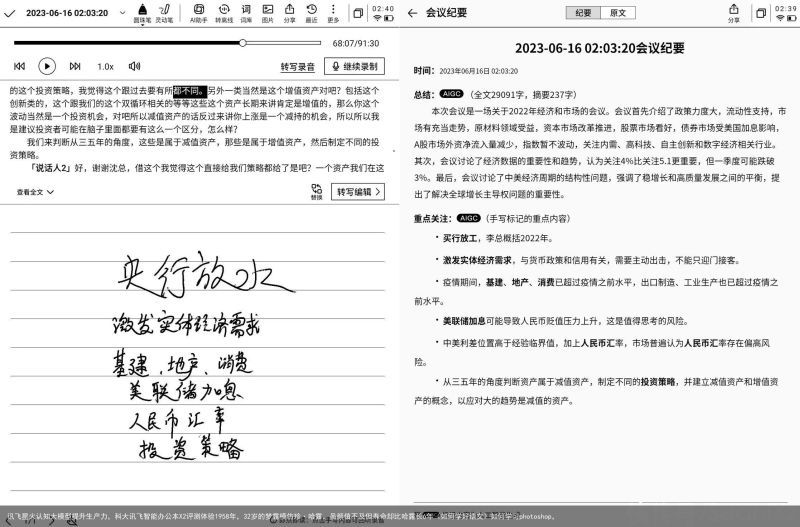 2023-06-16 02:03:20
圆珠笔
灵动笔
AI助手
转离线
词库
图片
分享
最近
更多
02:40
68:07/91:30
1.0x
转写录音
继续录制
的这个投资策略，我觉得这个跟过去要有所都不同。另外一类当然是这个增值资产对吧？包括这个
创新类的，这个跟我们的这个双循环相关的等等这些这个资产长期来讲肯定是增值的，那么你这个
波动当然是一个投资机会，对吧所以减值资产的话反过来讲你上涨是一个减持的机会，所以所以我
是建议投资者可能在脑子里面都要有这么一个区分，怎么样？
我们来判断从三五年的角度，这些是属于减值资产，那些是属于增值资产，然后制定不同的投
资策略。
「说话人2」好，谢谢沈总，借这个我觉得这个直接给我们策略都给了是吧？一个资产我们在这
查看全文
替换
转写编辑
央行放水
激发实体经济需求
基建、地产、消费
美联储加息
人民币汇率
投资策略
会议纪要
纪要
原文
分享
02:39
2023-06-16 02:03:20会议纪要
时间：2023年06月16日 02:03:20
总结：AIGC（全文29091字，摘要237字）
本次会议是一场关于2022年经济和市场的会议。会议首先介绍了政策力度大，流动性支持，市
场有充当走势，原材料领域受益，资本市场改革推进，股票市场看好，债券市场受美国加息影响，
A股市场外资净流入量减少，指数暂不波动，关注内需、高科技、自主创新和数字经济相关行业。
其次，会议讨论了经济数据的重要性和趋势，认为关注4%比关注5.1更重要，但一季度可能跌破
3%。最后，会议讨论了中美经济周期的结构性问题，强调了稳增长和高质量发展之间的平衡，提
出了解决全球增长主导权问题的重要性。
重点关注：AIGC（手写标记的重点内容）
• 买行放工，李总概括2022年。
• 激发实体经济需求，与货币政策和信用有关，需要主动出击，不能只迎门接客。
• 疫情期间，基建、地产、消费已超过疫情之前水平，出口制造、工业生产也已超过疫情之
前水平。
• 美联储加息可能导致人民币贬值压力上升，这是值得思考的风险。
• 中美利差位置高于经验临界值，加上人民币汇率，市场普遍认为人民币汇率存在偏高风
险。
• 从三五年的角度判断资产属于减值资产，制定不同的投资策略，并建立减值资产和增值资
产的概念，以应对大的趋势是减值的资产。
讯飞星火认知大模型提升生产力，科大讯飞智能办公本X2评测体验1958年，32岁的梦露模仿珍·哈露，虽颜值不及但寿命却比哈露长6年（如何学好语文）如何学习photoshop。